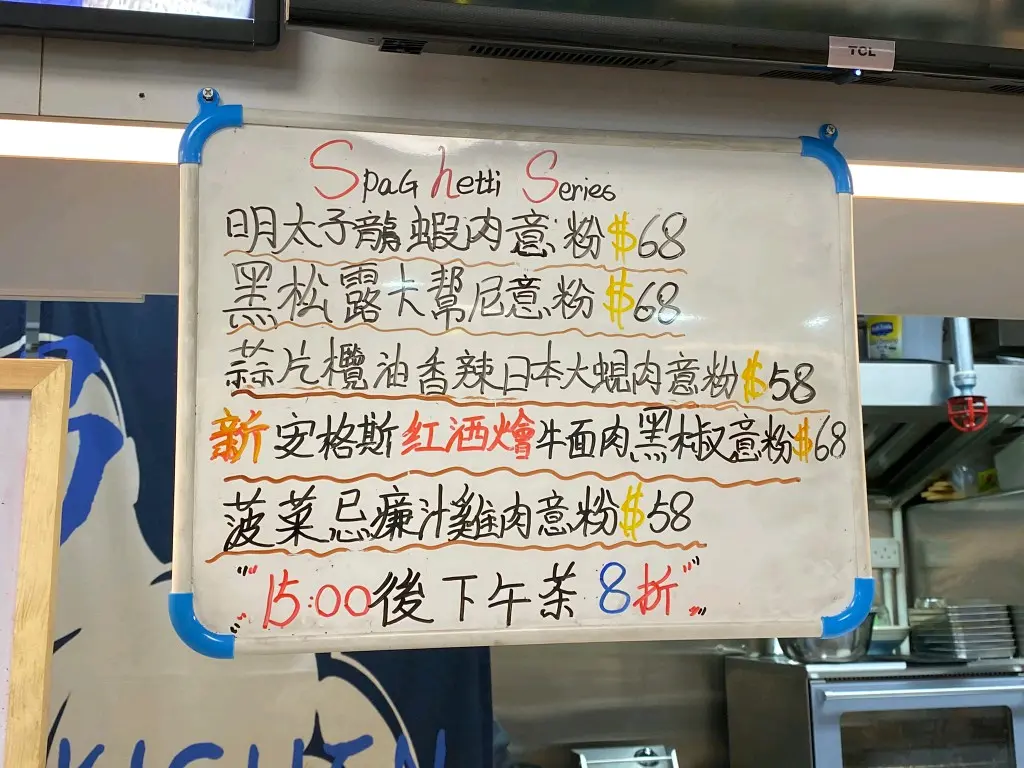 TCL
SpaGhetti Series
明太子龍蝦肉意粉$68
黑松露大幫尼意粉$68
蒜片欖油香辣日本大蜆肉意粉$58
新安格斯红酒燴牛面肉黑椒意粉$68
菠菜忌廉汁雞肉意粉$58
"15:00後下午茶8折"
KIGHIN